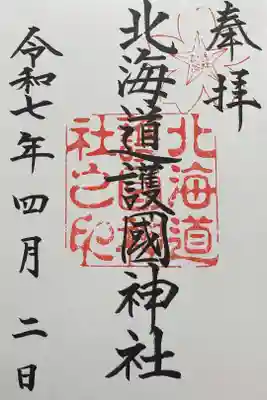 奉拝
北海道護國神社
北海道護國神社之印
令和七年四月二日